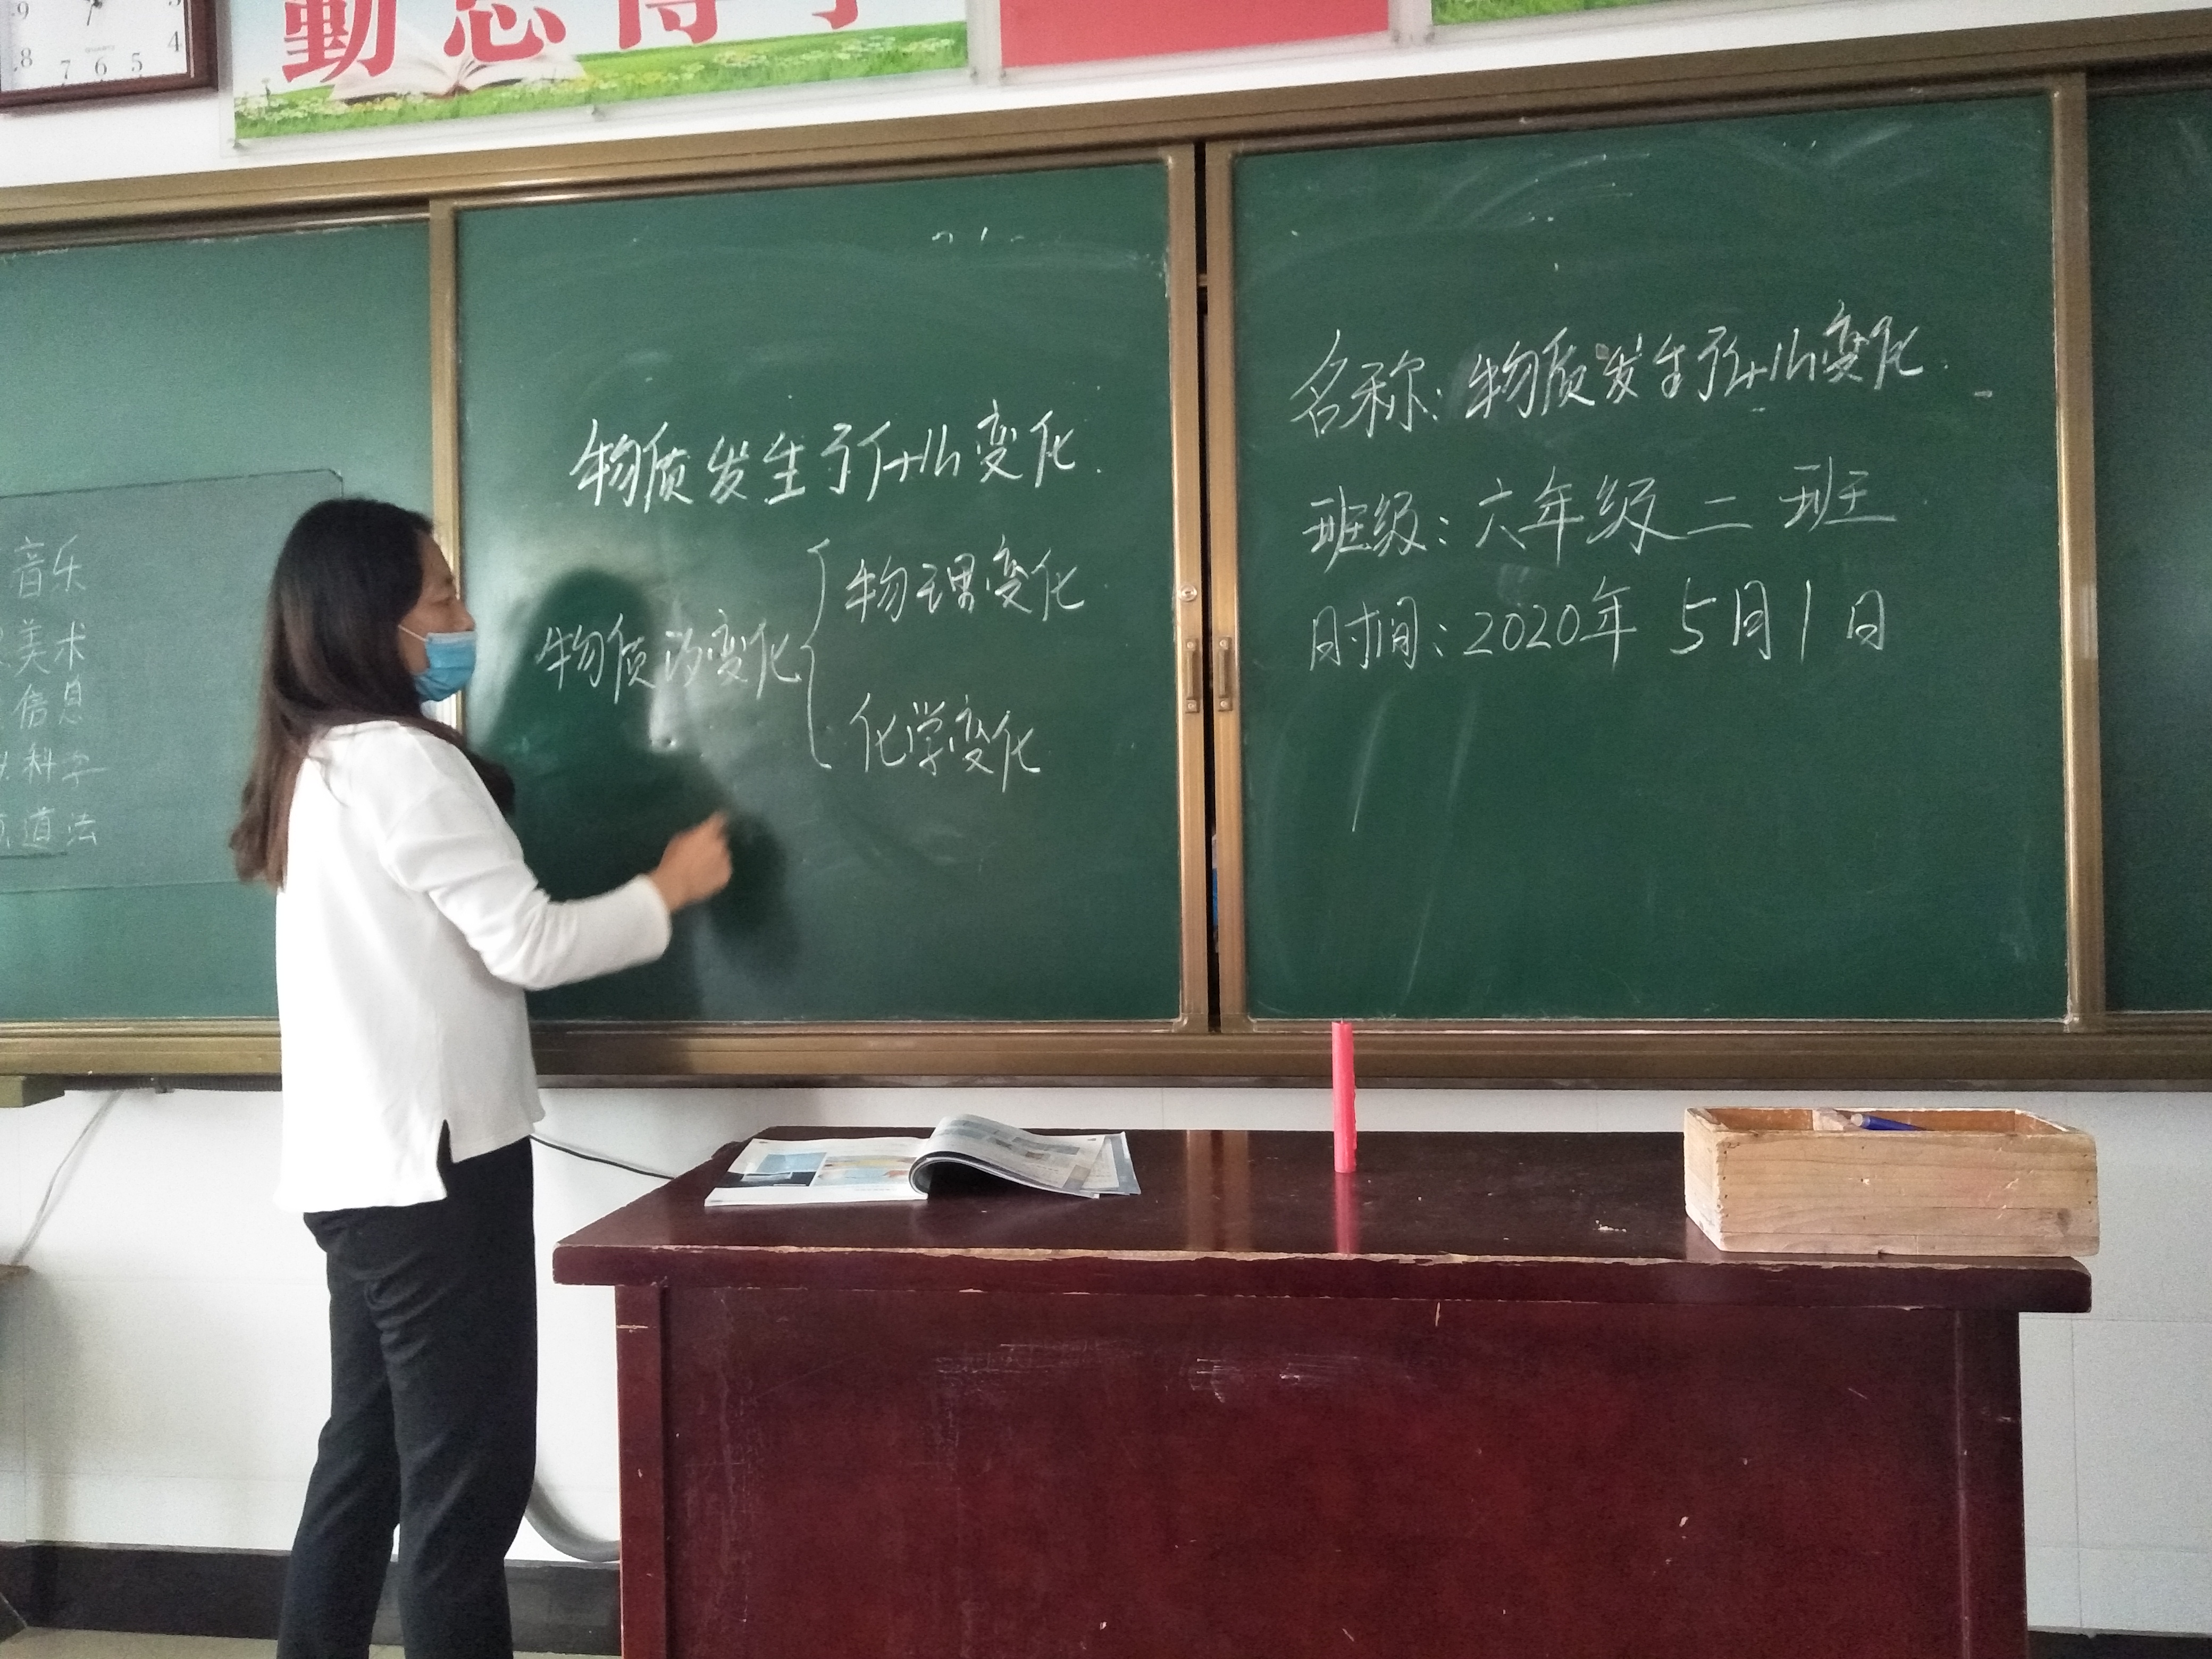 9 3
8 4
7 6 5
勤思博学
音乐
美术
信息
科学
道法
物质发生了什么变化
物质的变化
物理变化
化学变化
名称：物质发生了什么变化
班级：六年级二班
时间：2020年5月1日